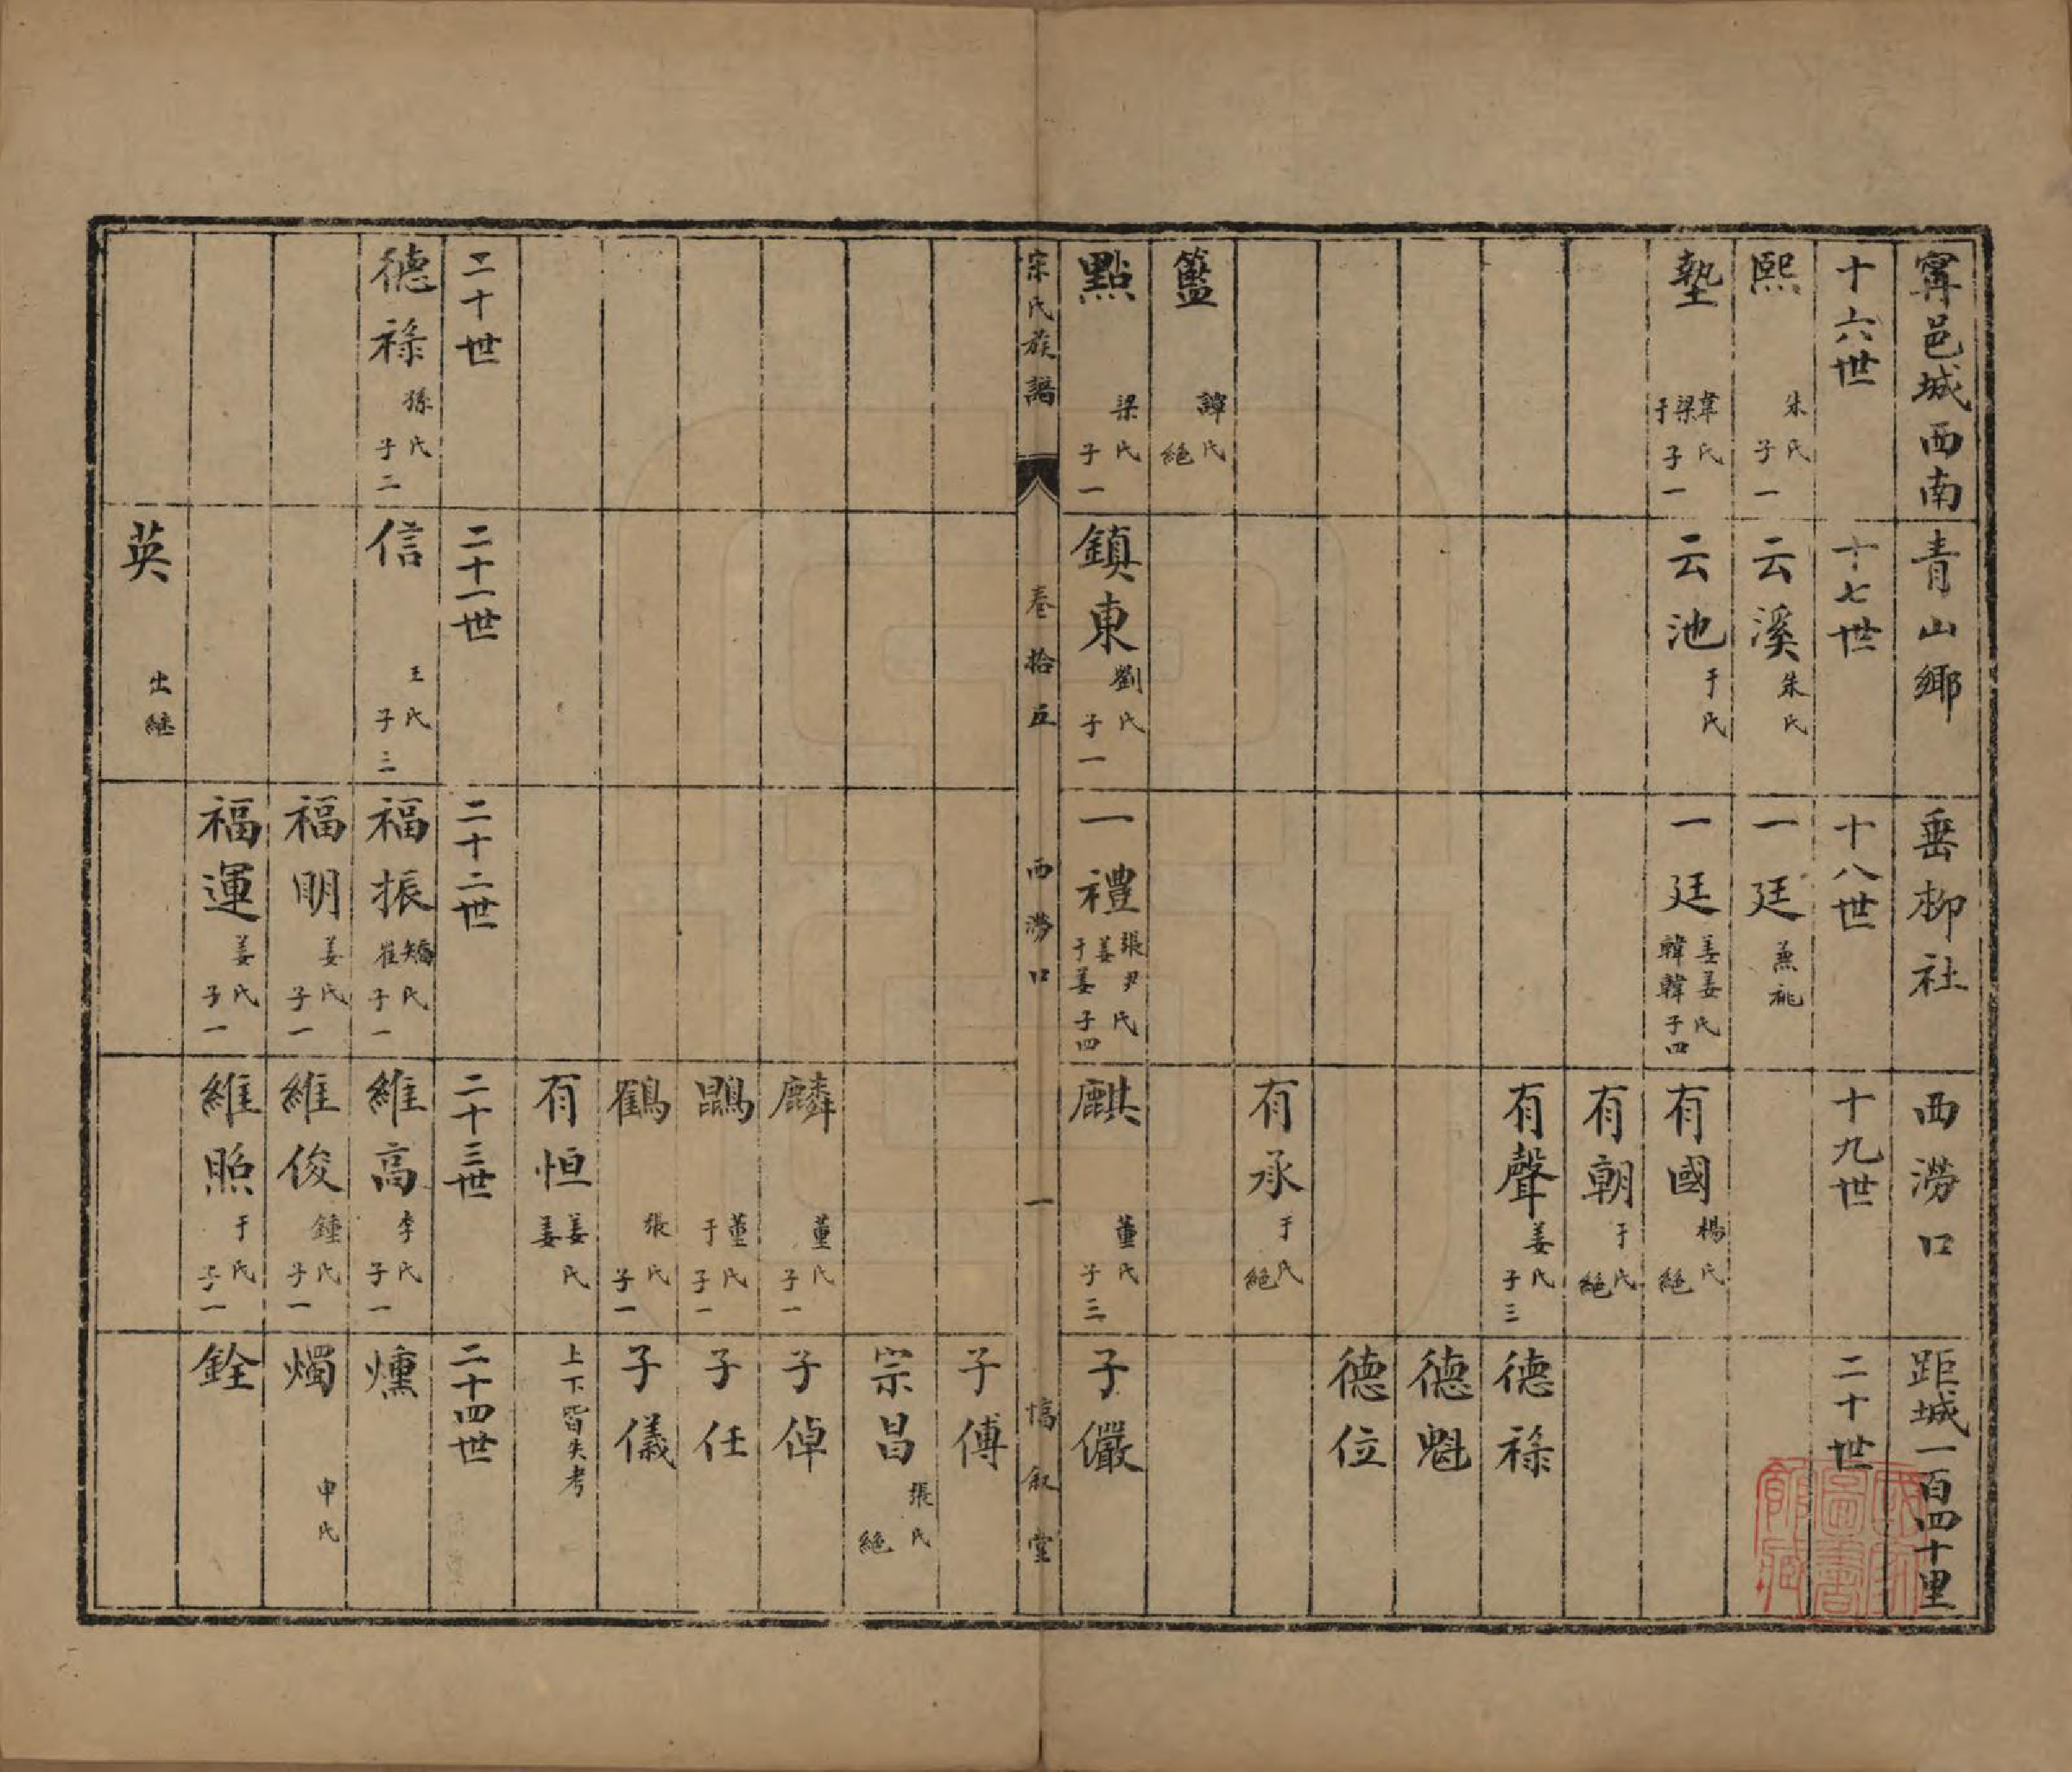 寗邑城西南青山鄉垂柳社西澇口距城一百四十里
十六世 十七世 十八世 十九世 二十世
熙 朱氏 子一 云溪 朱氏 一廷 兼祧
墊 韋梁于氏 子一 云池 于氏 一廷 姜姜韓韓氏 子四 有國 楊氏 絕
有朝 于氏 絕
有聲 姜氏 子三 德祿
德魁
德位
有承 于氏 絕
籃 諱氏 絕
點 梁氏 子一 鎮東 劉氏 子一 一禮 張尹姜于姜氏 子四 麒 董氏 子三 子儼
宗氏族譜 卷拾五 西澇口 一 惇敘堂
子傅
宗昌 張氏 絕
麟 董氏 子一 子倬
鵾 董于氏 子一 子任
鶴 張氏 子一 子儀
有恒 姜姜氏 上下皆失考
二十世 二十一世 二十二世 二十三世 二十四世
德祿 孫氏 子二 信 王氏 子三 福振 矯崔氏 子一 維高 李氏 子一 燻
福明 姜氏 子一 維俊 鍾氏 子一 燭 申氏
福運 姜氏 子一 維照 于氏 子一 銓
英 出繼